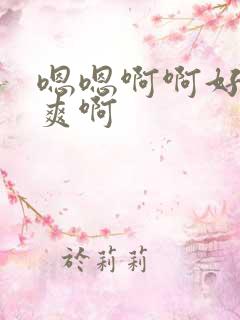 嗯嗯啊啊好
爽啊
於莉莉